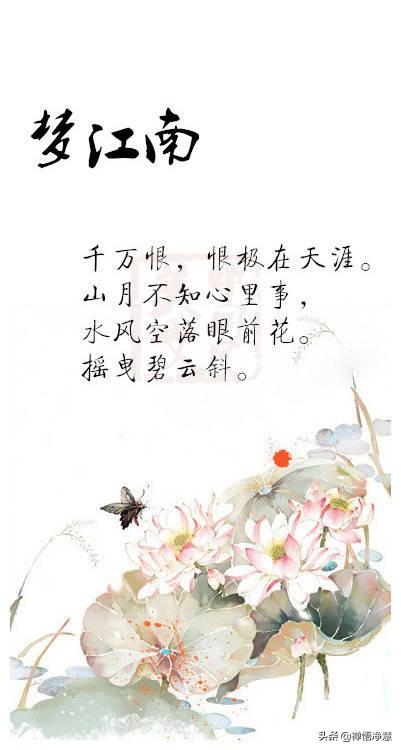 梦江南
千万恨，恨极在天涯。
山月不知心里事，
水风空落眼前花。
摇曳碧云斜。
头条@禅悟净慧